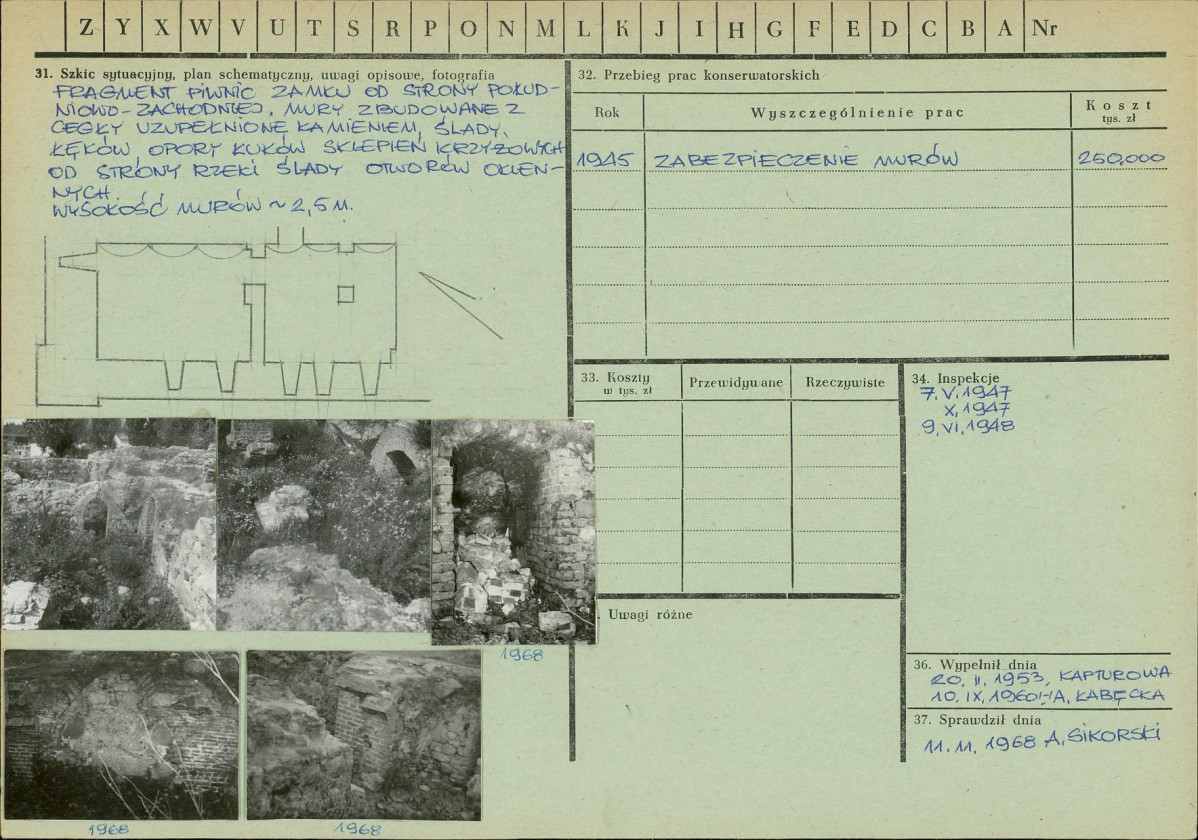 Z Y X W V U T S R P O N M L K J I H G F E D C B A Nr
31. Szkic sytuacyjny, plan schematyczny, uwagi opisowe, fotografia
FRAGMENT PIWNIC ZAMKU OD STRONY POŁUD-
NIOWO-ZACHODNIEJ, MURY ZBUDOWANE Z
CEGŁY UZUPEŁNIONE KAMIENIEM, ŚLADY,
ŁĘKÓW, OPORY ŁUKÓW SKLEPIEŃ KRZYŻOWYCH
OD STRONY RZEKI ŚLADY OTWORÓW OKIEN-
NYCH.
WYSOKOŚĆ MURÓW ~ 2,5 M.
1968
1968
1968
32. Przebieg prac konserwatorskich
Rok
Wyszczególnienie prac
Koszt
tys. zł
1945 ZABEZPIECZENIE MURÓW 250.000
33. Koszty
w tys. zł
Przewidywane
Rzeczywiste
34. Inspekcje
7. V. 1947
X. 1947
9. VI. 1948
. Uwagi różne
36. Wypełnił dnia
20. II. 1953, KAPTUROWA
10. IX. 1960 A. ŁABĘCKA
37. Sprawdził dnia
11. 11. 1968 A. SIKORSKI